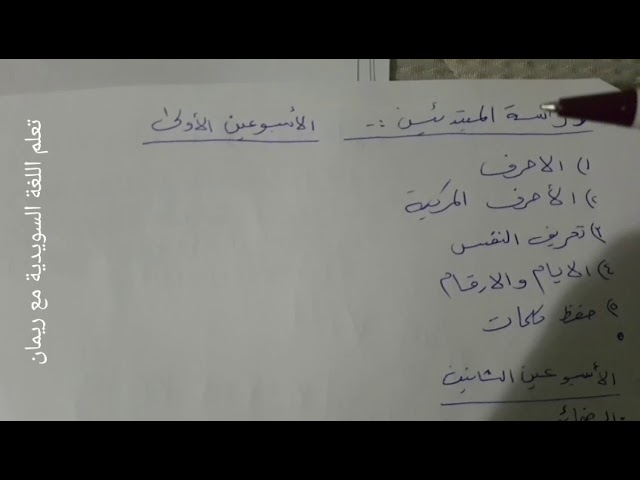 دراسة المبتدئين :- الأسبوعين الأولى
١) الاحرف
٢) الأحرف المركبة
٣) تعريف النفس
٤) الايام والارقام
٥) حفظ كلمات
الأسبوعين الثانين
تعلم اللغة السويدية مع ريمان